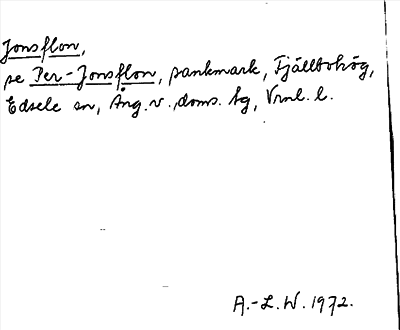 Jonsflon,
se Per-Jonsflon, sankmark, Fjällbohög,
Edsele sn, Ång. v. doms. tg, Vrnl. l.
A.-L. W. 1972.